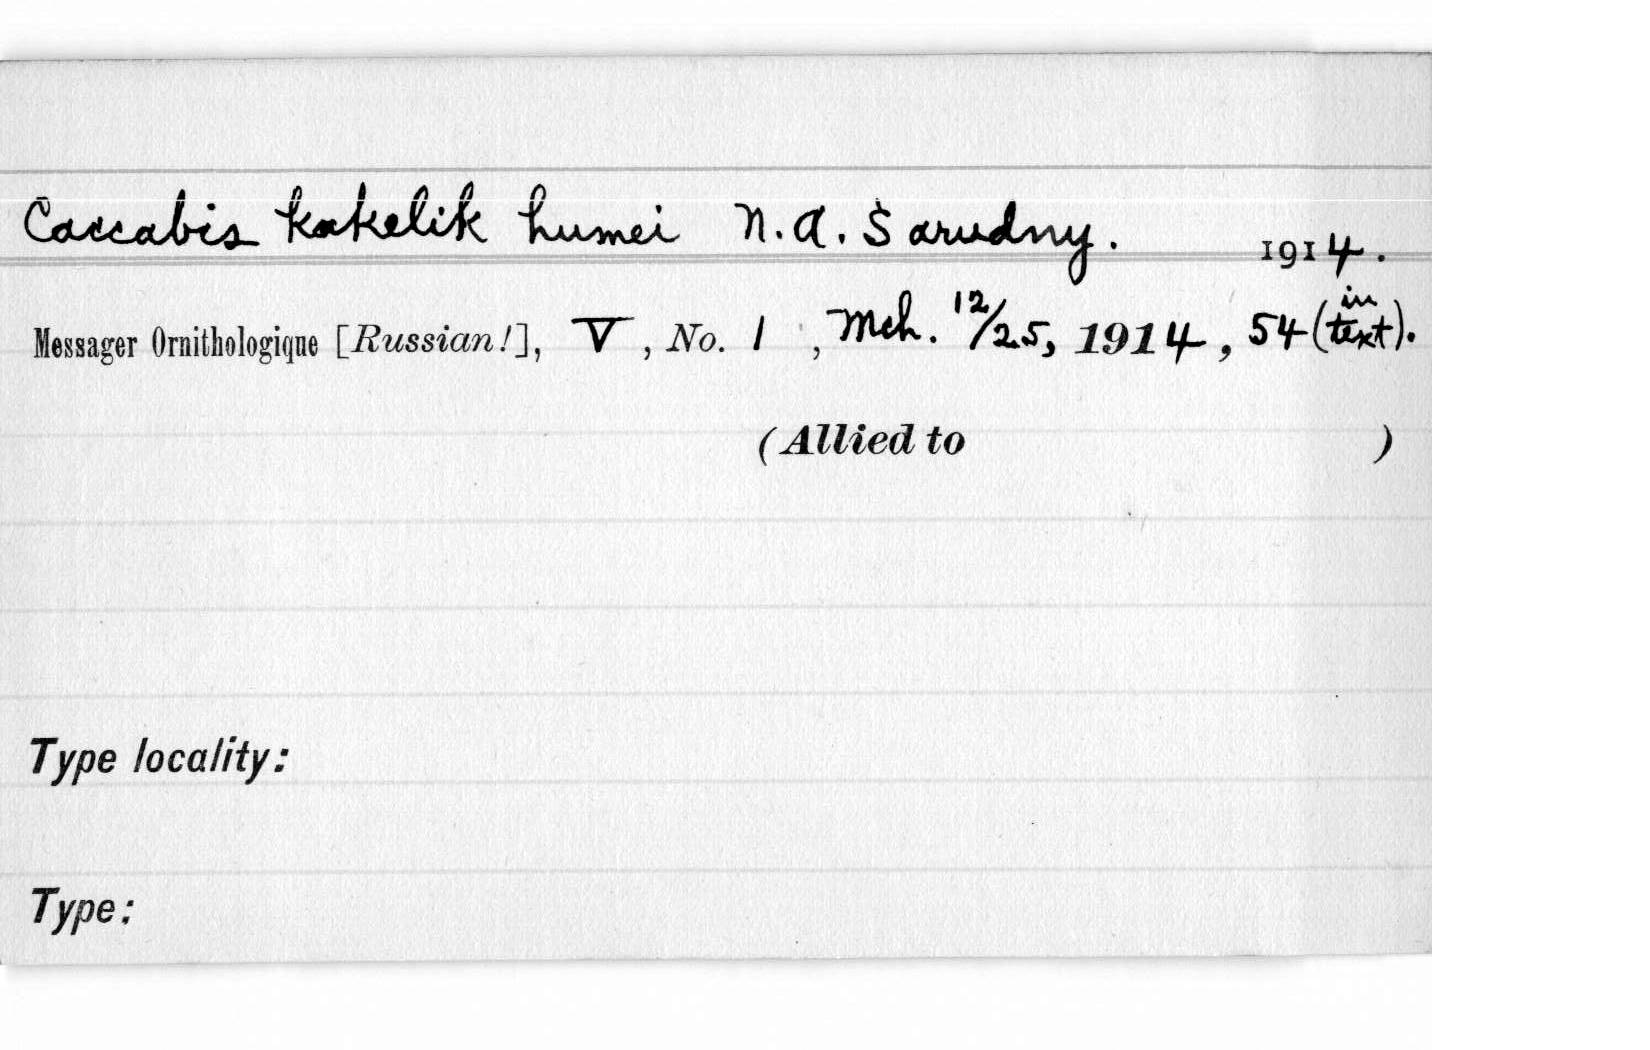 Caccabis kakelik humei N. A. Sarudny. 1914.
Messager Ornithologique [Russian!], V, No. 1, Mch. 12/25, 1914, 54 (in text).
(Allied to )
Type locality:
Type: